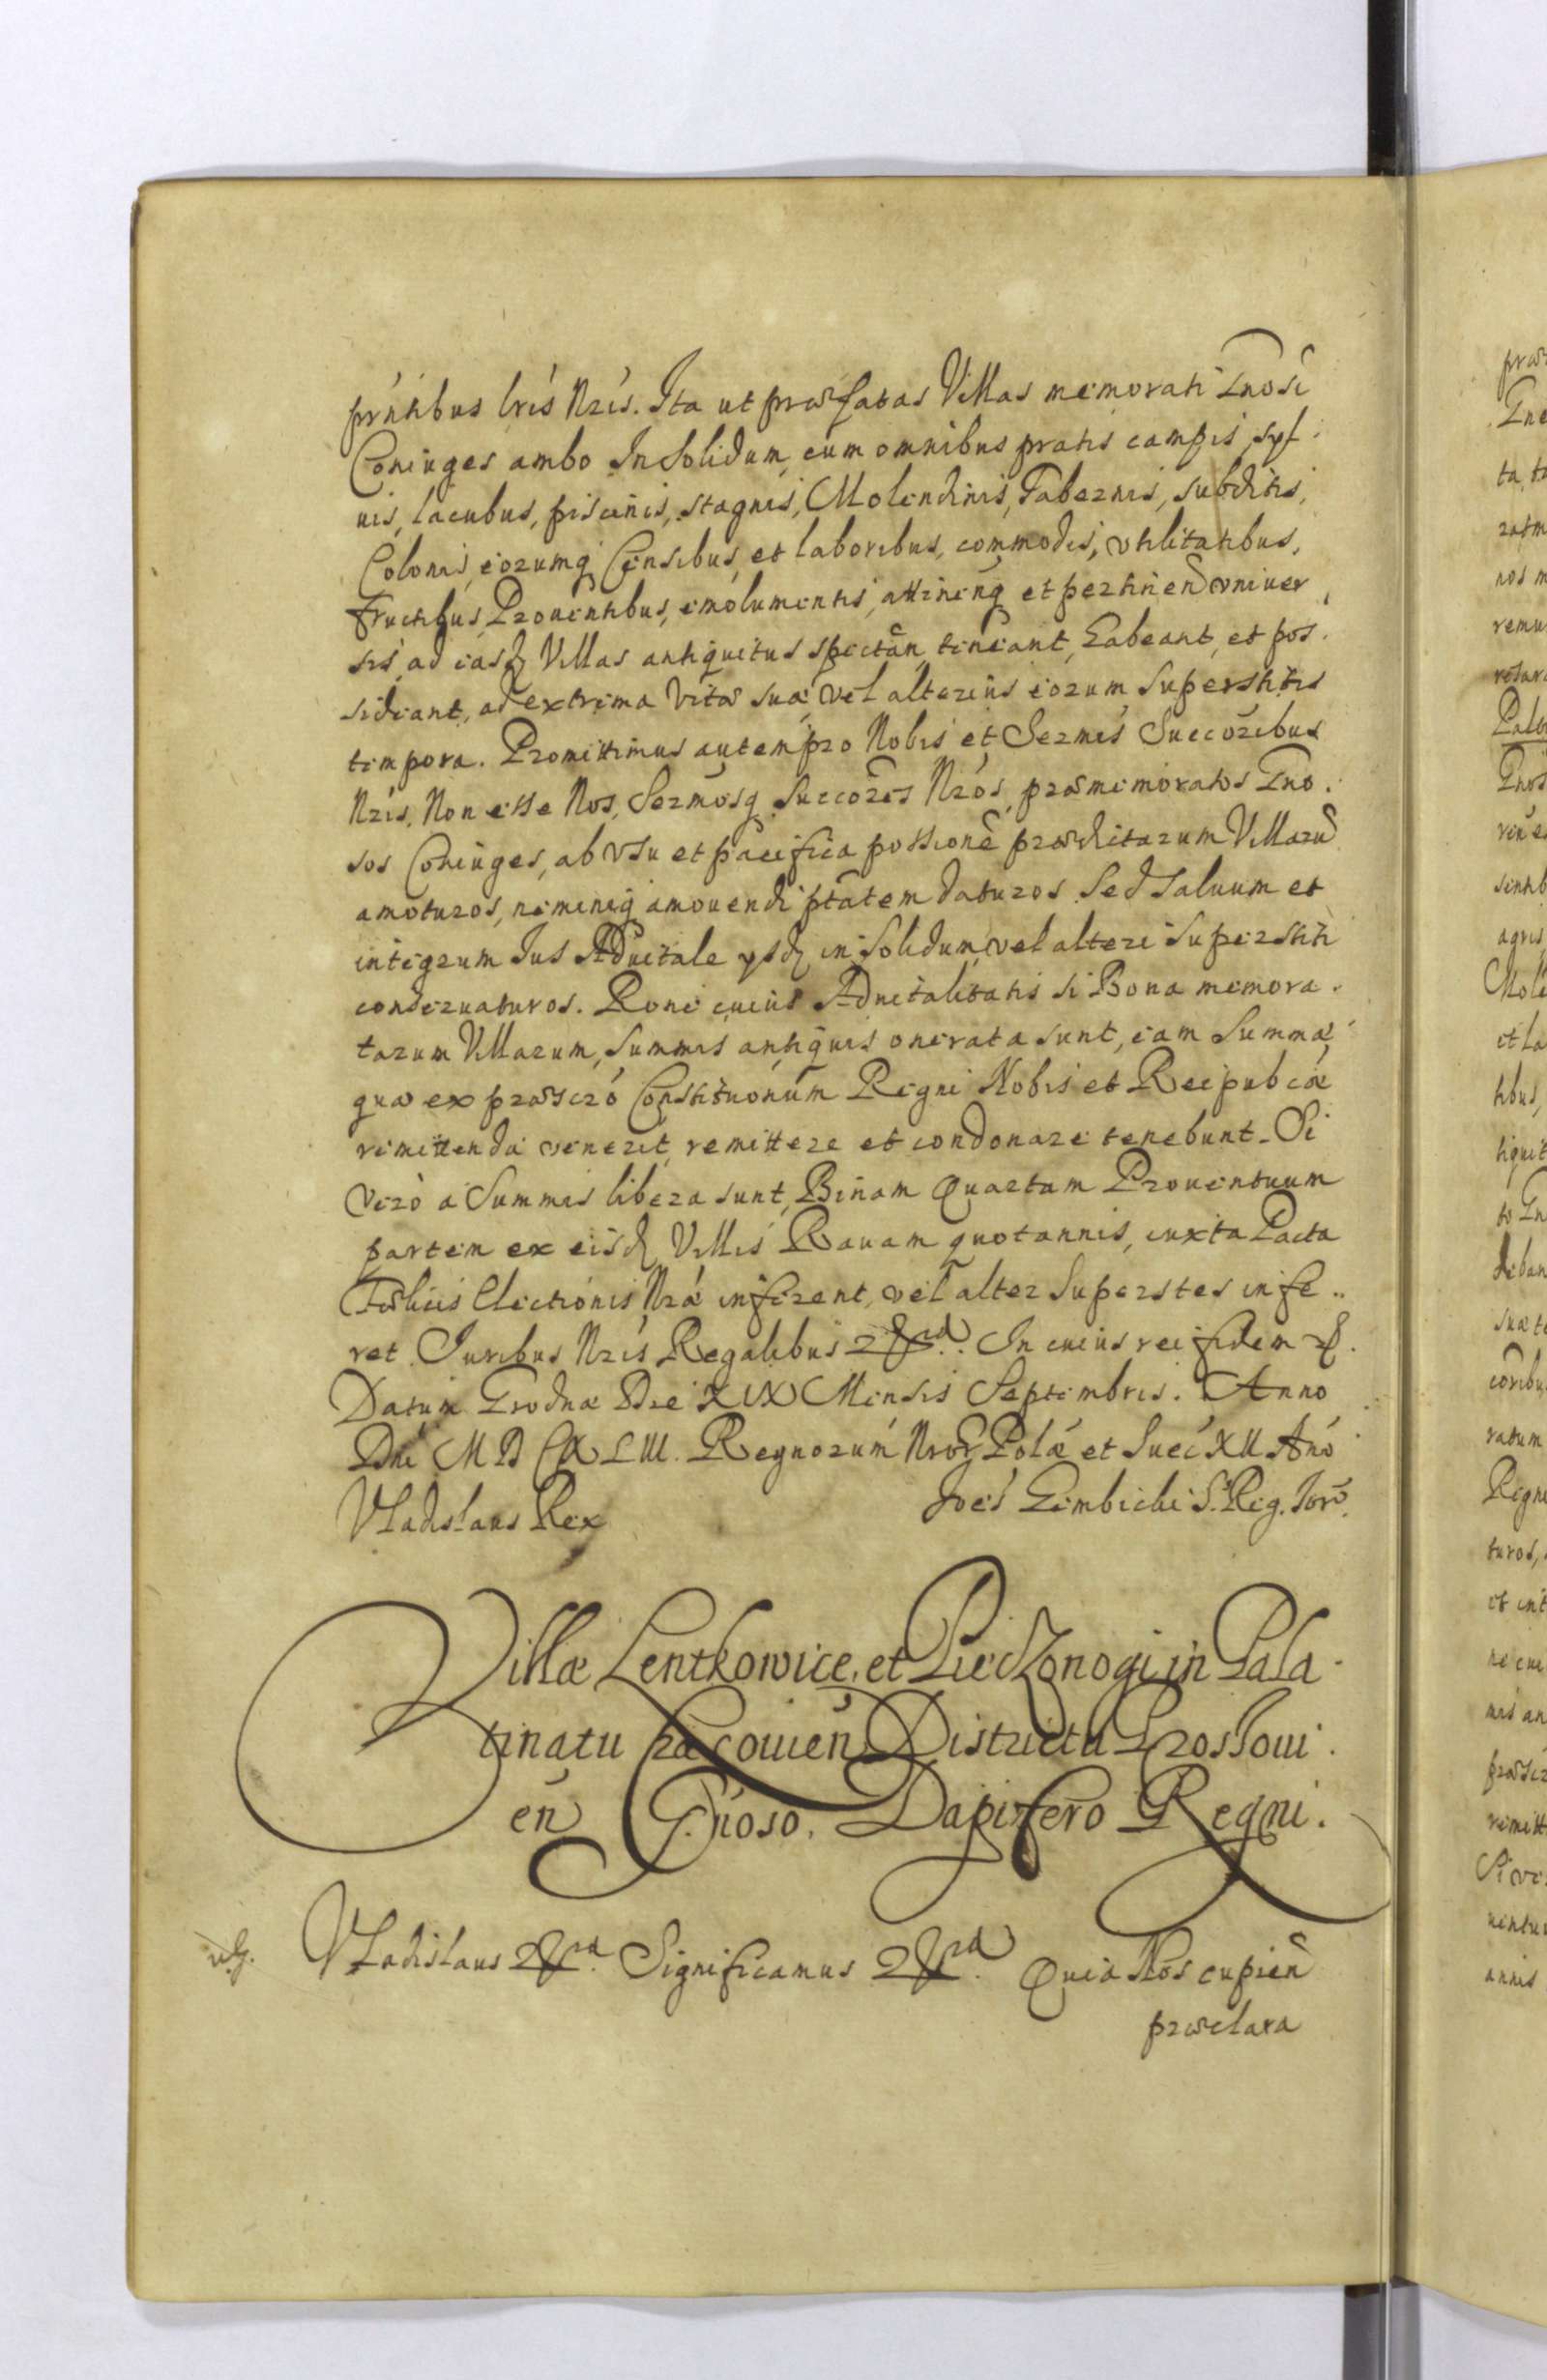 prńtibus lrís Nrís. Ita ut præfatas Villas memorati Gnosi
Coniuges ambo In solidum, cum omnibus pratis campis, syl-
uis, lacubus, piscinis, stagnis, Molendinis, Tabernis, subditis,
Colonis, eorumq Censibus, et laboribus, commodis, vtilitatibus,
fructibus, Prouentibus, emolumentis, attinenq et pertinen vniuer
sis, ad easd Villas antiquitus spectan, teneant, habeant, et pos-
sideant, ad extrema vitæ suæ vel alterius eorum superstitis
tempora. Promittimus autem pro Nobis et Sermis Succoribus
Nris, Non esse Nos, Sermosq Succores Nros, præmemoratos Gno-
sos Coniuges, ab vsu et pacifica possione prædictarum Villaru
amoturos, neminiq amouendi ptatem daturos. Sed saluum et
integrum Ius Aduitale ysd in solidum, vel alteri superstiti
conseruaturos. Rone cuius Aduitalitatis si Bona memora-
tarum Villarum, summis antiquis onerata sunt, eam Summæ
quæ ex præscro Constituonum Regni Nobis et Reipubcæ
remittenda venerit, remittere et condonare tenebunt. Si
Vero a Summis libera sunt, Binam Quartam Prouentuum
partem ex eisd Villis Rauam quotannis, iuxta Pacta
Fælicis Electionis Nræ inferent, vel alter superstes infe-
ret. Iuribus Nris Regalibus In cuius rei fidem
Datum Grodnæ Die XIX Mensis Septembris. Anno
Dni M D C XLIII. Regnorum Nror Polæ et Suec XII Ano
Vladislaus Rex Joes Gembicki S. Reg.
Villæ Lentkowice, et Pieczonogi in Pala-
tinatu Cracouien Districtu Proszoui-
en G. Dapifero Regni.
Vladislaus Significamus Quia Nos cupien
præclara